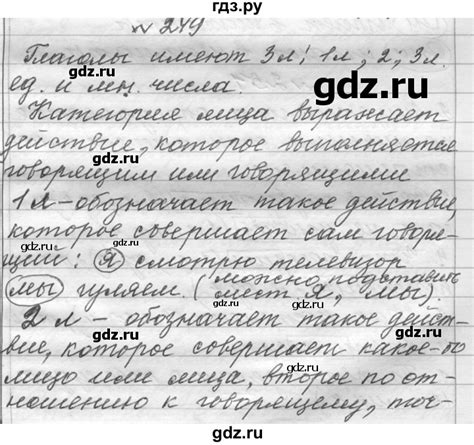 гдз.ру
№ 249
Глаголы имеют 3л: 1л; 2; 3л.
ед. и мн. числа.
Категория лица выражает
действие, которое выполняется
говорящим или говорящими
1л – обозначает такое действие,
которое совершает сам говоря-
щий: Я смотрю телевизор
мы гуляем. (можно подставить
мест. Я, мы).
2л – обозначает такое дейст-
вие, которое совершает какое-то
лицо или лица, второе по от-
ношению к говорящему, точ-
gdz.ru
gdz.ru
gdz.ru
gdz.ru
gdz.ru
gdz.ru
gdz.ru
gdz.ru